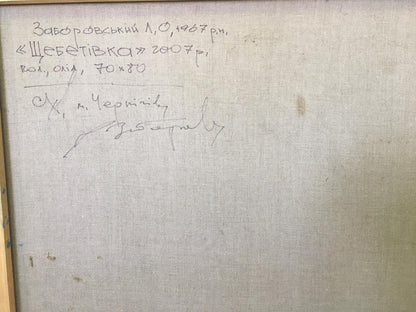 Заборовський Л,О, 1967 р.н.
«Щебетівка» 2007 р,
пол, олія, 70×80
СХ, м. Чернігів